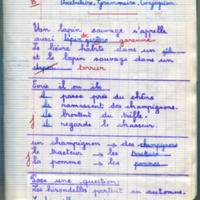 Vocabulaire, Grammaire, Conjugaison
Un lapin sauvage s'appelle
aussi lapin de garenne.
Le lièvre habite dans un gîte
et le lapin sauvage dans un
terrier
Écris il ou ils
il passe près du chêne
ils ramassent des champignons.
ils broutent du trèfle.
il regarde le chasseur.
un champignon → des champignons
le tracteur → les tracteurs
la pomme → les pommes
Pose une question:
Les hirondelles partent en automne.